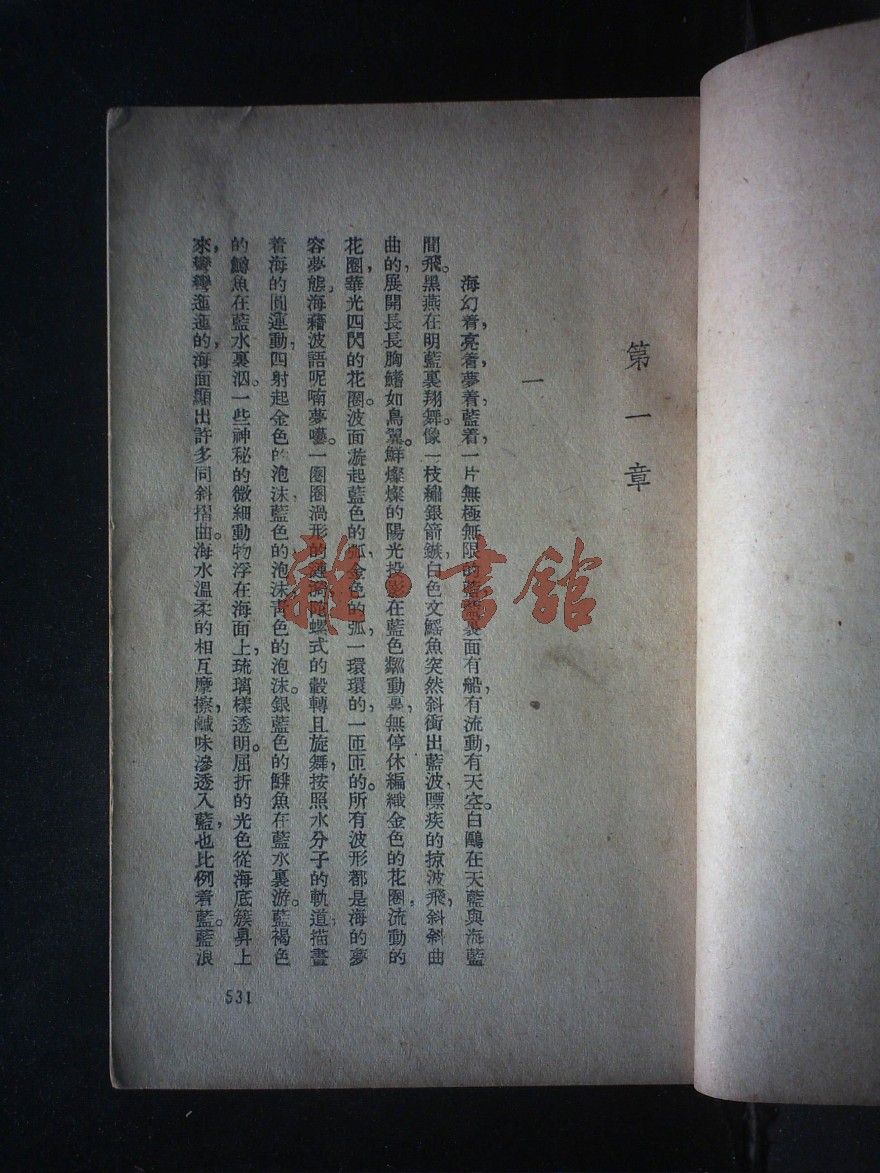 第一章
一
海幻着，亮着，夢着，藍着，一片無極無限的藍。藍裏面有船，有流動，有天空。白鷗在天藍與海藍
間飛。黑燕在明藍裏翔舞。像一枝繡銀箭鏃，白色文鰩魚突然斜衝出藍波，嘌疾的掠波飛，斜斜曲
曲的，展開長長胸鰭如鳥翼。鮮燦燦的陽光投影在藍色粼動裏，無停休編織金色的花圈，流動的
花圈，華光四閃的花圈。波面漩起藍色的弧，金色的弧，一環環的，一匝匝的。所有波形都是海的夢
容夢態。海藉波語呢喃夢囈。一圈圈渦形的漣漪陀螺式的轂轉且旋舞，按照水分子的軌道，描畫
着海的圓運動，四射起金色的泡沫，藍色的泡沫，靑色的泡沫。銀藍色的鯡魚在藍水裏游。藍褐色
的鱒魚在藍水裏泅。一些神秘的微細動物浮在海面上，琉璃樣透明。屈折的光色從海底簇昇上
來，彎彎迤迤的，海面顯出許多同斜摺曲。海水溫柔的相互摩擦，鹹味滲透入藍，也比例着藍。藍浪
531
雜·書館